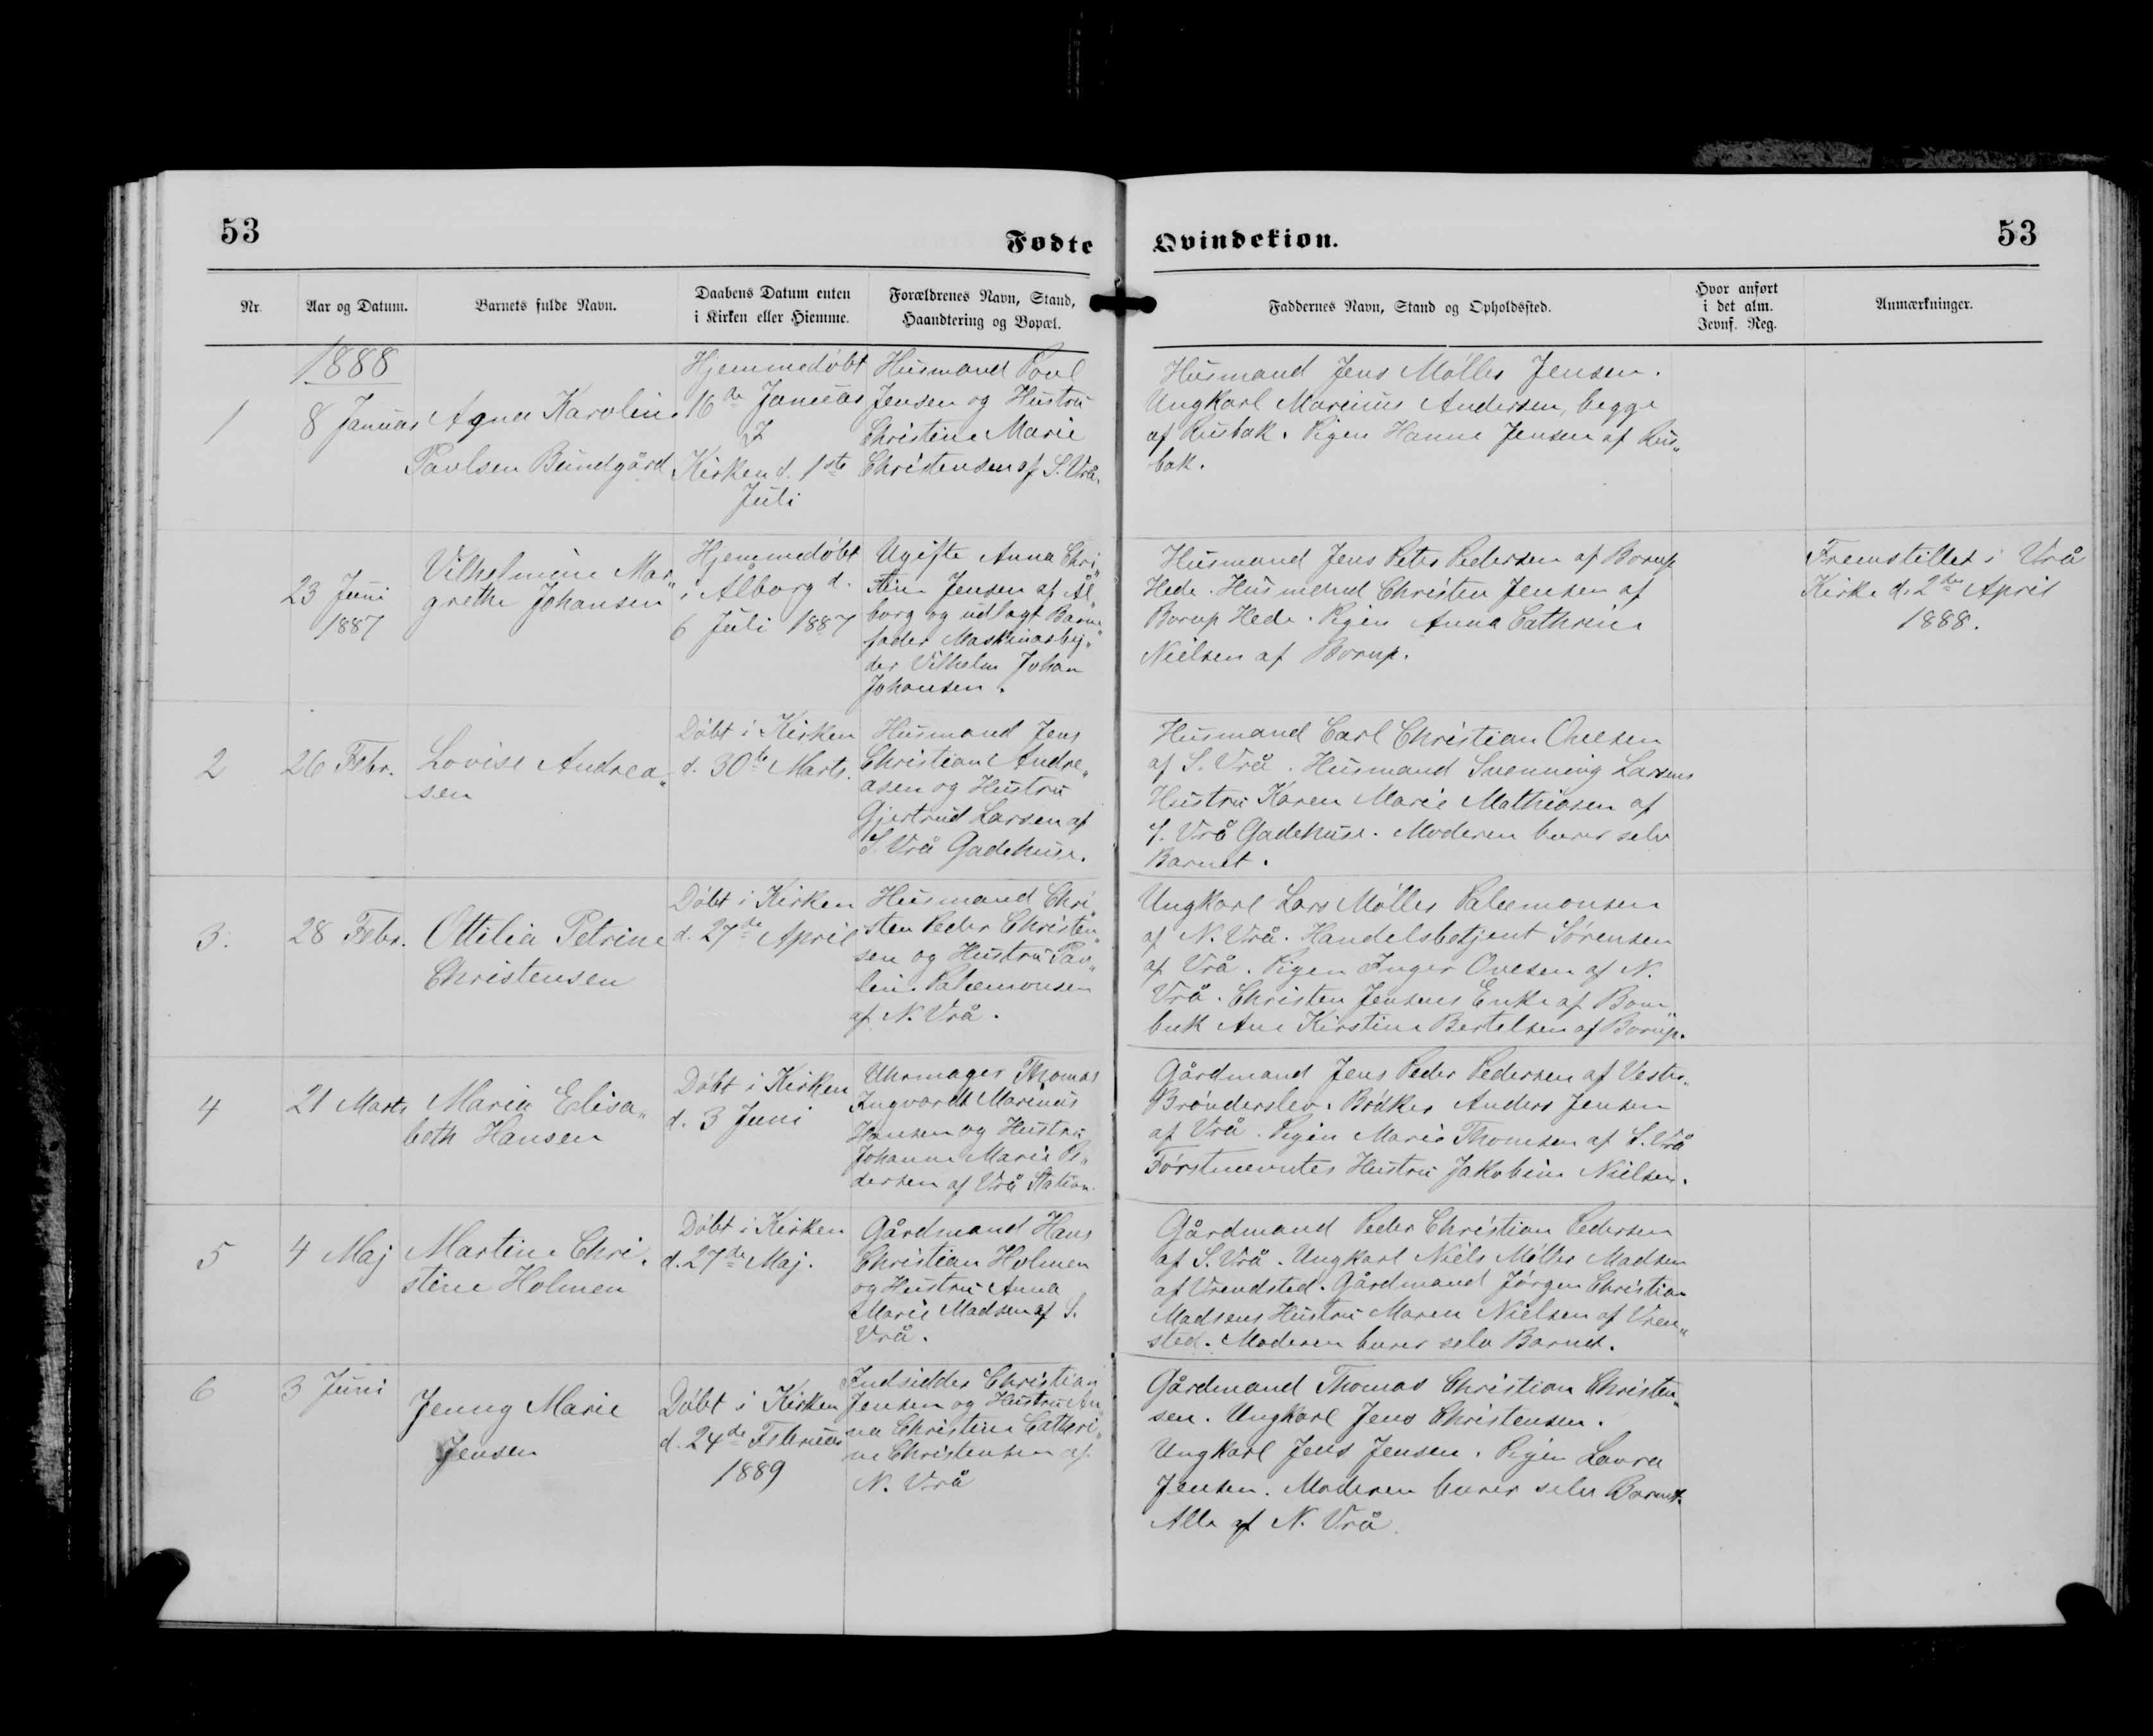 53
Fødte
Qvindekiøn.
53
Nr.
Aar og Datum.
Barnets fulde Navn.
Daabens Datum enten
i Kirken eller Hiemme.
Forældrenes Navn, Stand,
Haandtering og Bopæl.
Faddernes Navn, Stand og Opholdssted.
Hvor anført
i det alm.
Jevnf. Reg.
Anmærkninger.
1888
1
8 Januar
Agnea Karoline
Poulsen Bundgård
Hjemmedöbt
16de Januar
I
Kirken d. 1ste
Juli
Husmand Poul
Jensen og Hustru
Christine Marie
Christensen af S. Vrå.
Husmand Jens Möller Jensen.
Ungkarl Marinus Andersen, begge
af Rusbak. Pigen Hanne Jensen af Rus„
bak.
23 Juni
1887
Vilhelmine Mar„
grethe Johansen
Hjemmedöbt
i Ålborg d.
6 Juli 1887
Ugifte Anna Chri„
stine Jensen af Ål„
borg og udlagt Barne„
fader Maskinarbej„
der Vilhelm Johan
Johansen.
Husmand Jens Peter Pedersen af Borup
Hede. Husmand Christen Jensen af
Borup Hede. Pigen Anna Cathrine
Nielsen af Borup.
Fremstillet i Vrå
Kirke d. 2den April
1888.
2
26 Febr.
Lovise Andrea„
sen
Döbt i Kirken
d. 30te Marts.
Husmand Jens
Christian Andre„
asen og Hustru
Gjertrud Larsen af
S. Vrå Gadehuse.
Husmand Carl Christian Ovesen
af S. Vrå. Husmand Svenning Larsens
Hustru Karen Marie Mathiasen af
S. Vrå Gadehuse. Moderen barer selv
Barnet.
3.
28 Febr.
Ottilia Petrine
Christensen
Döbt i Kirken
d. 27de April
Husmand Chri„
sten Peder Christen„
sen og Hustru Pau„
line Palæmonsen
af N. Vrå.
Ungkarl Lars Möller Palæmonsen
af N. Vrå. Handelsbetjent Sörensen
af Vrå. Pigen Inger Ovesen af N.
Vrå. Christen Jensens Enke af Bom„
bak Ane Kirstine Bertelsen af Borup.
4
21 Marts
Maria Elisa„
beth Hansen
Döbt i Kirken
d. 3 Juni
Uhrmager Thomas
Ingvardt Marinus
Hansen og Hustru
Johanne Marie Pe„
dersen af Vrå Station.
Gårdmand Jens Peder Pedersen af Vester„
Brönderslev. Bödker Anders Jensen
af Vrå. Pigen Marie Thomsen af S. Vrå
Förstnævntes Hustru Jakobine Nielsen.
5
4 Maj
Martine Chri„
stine Holmen
Döbt i Kirken
d. 27de Maj.
Gårdmand Hans
Christian Holmen
og Hustru Anna
Marie Madsen af S.
Vrå.
Gårdmand Peder Christian Pedersen
af S. Vrå. Ungkarl Niels Möller Madsen
af Vrendsted. Gårdmand Jörgen Christian
Madsens Hustru Maren Nielsen af Vren„
sted. Moderen barer selv Barnet.
6
3 Juni
Jenny Marie
Jensen
Döbt i Kirken
d. 24de Februar
1889
Indsidder Christian
Jensen og Hustru An„
na Christine Cathri„
ne Christensen af
N. Vrå
Gårdmand Thomas Christian Christen„
sen. Ungkarl Jens Christensen.
Ungkarl Jens Jensen. Pigen Laura
Jensen. Moderen barer selv Barnet.
Alle af N. Vrå.